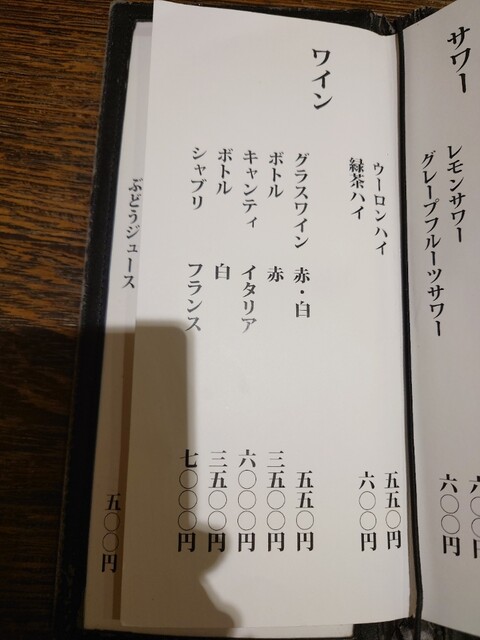 サワー
レモンサワー
グレープフルーツサワー 六〇〇円
ウーロンハイ 五五〇円
緑茶ハイ 六〇〇円
ワイン
グラスワイン 赤・白 五五〇円
ボトル 赤 三五〇〇円
キャンティ イタリア 六〇〇〇円
ボトル 白 三五〇〇円
シャブリ フランス 七〇〇〇円
ぶどうジュース 五〇〇円